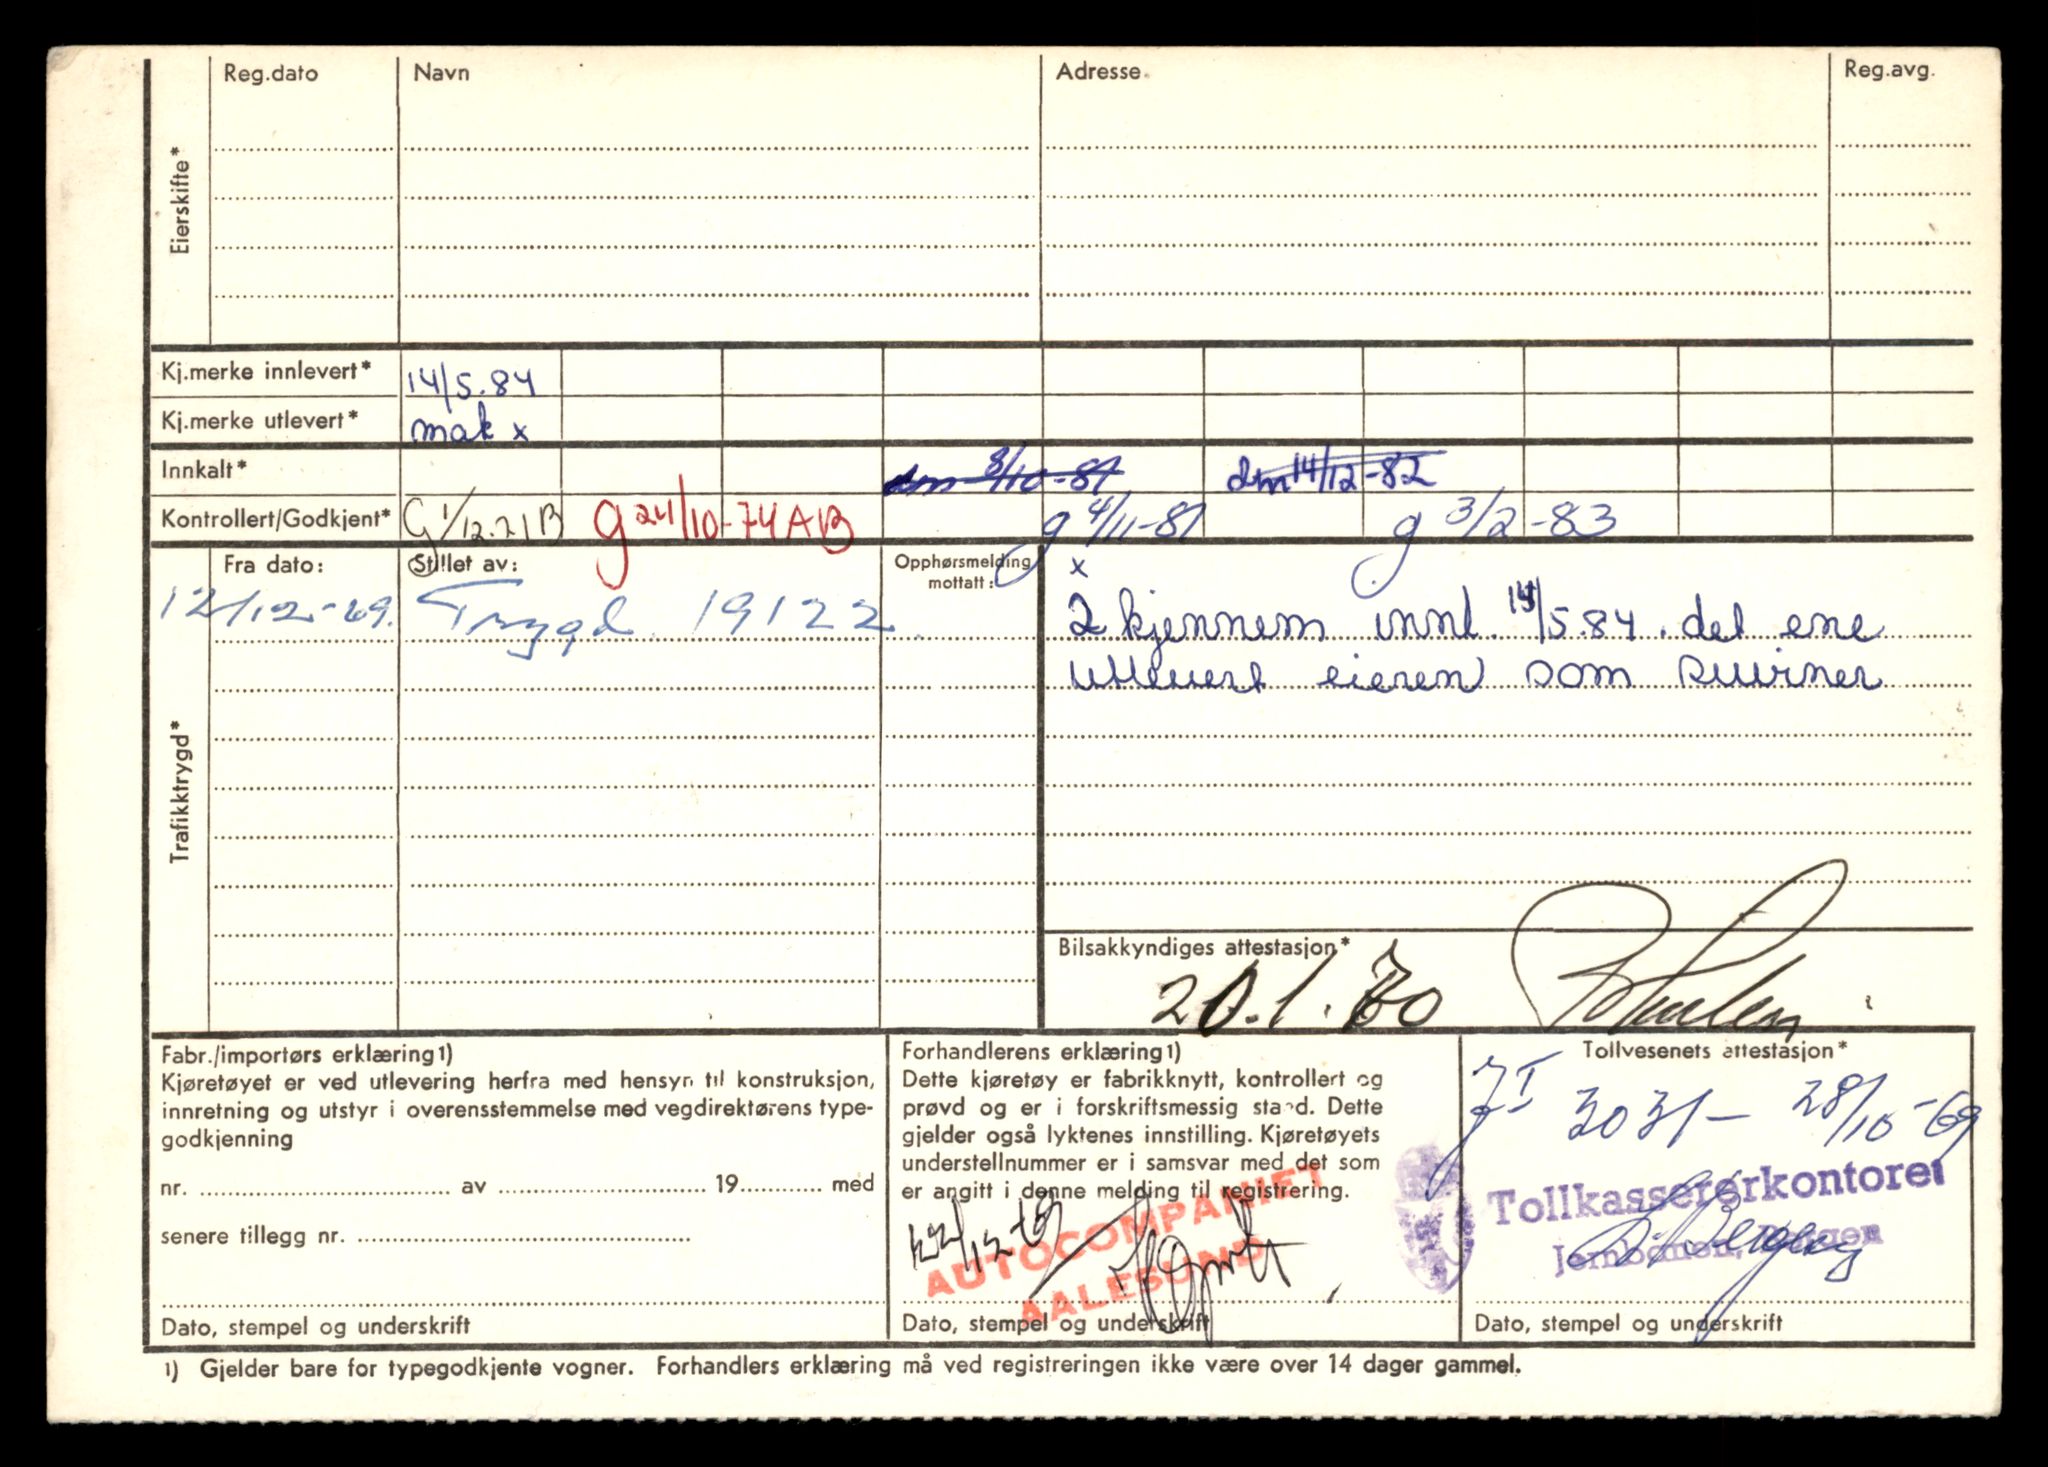 Reg.dato Navn Adresse Reg.avg.
Eierskifte*
Kj.merke innlevert* 14/5.84
Kj.merke utlevert* mak x
Innkalt* dm 8/10-81 dm 14/12-82
Kontrollert/Godkjent* G 1/12.71 B g 24/10-74 AB g 4/11-81 g 3/2-83
Trafikktrygd*
Fra dato: Stillet av: Opphørsmelding mottatt: x
12/12-69. Trygd. 19122
2 kjennem innl. 14/5.84. det ene
utlevert eieren som suvirner
Bilsakkyndiges attestasjon*
20.1.70
Fabr./importørs erklæring1)
Kjøretøyet er ved utlevering herfra med hensyn til konstruksjon,
innretning og utstyr i overensstemmelse med vegdirektørens type-
godkjenning
nr. av 19 med
senere tillegg nr.
Dato, stempel og underskrift
Forhandlerens erklæring1)
Dette kjøretøy er fabrikknytt, kontrollert og
prøvd og er i forskriftsmessig stand. Dette
gjelder også lyktenes innstilling. Kjøretøyets
understellnummer er i samsvar med det som
er angitt i denne melding til registrering.
AUTOCOMPANIET
AALESUND
Dato, stempel og underskrift
Tollvesenets attestasjon*
3031 - 28/10-69
Tollkassererkontoret
Jernbanen, Bergen
Dato, stempel og underskrift
1) Gjelder bare for typegodkjente vogner. Forhandlers erklæring må ved registreringen ikke være over 14 dager gammel.